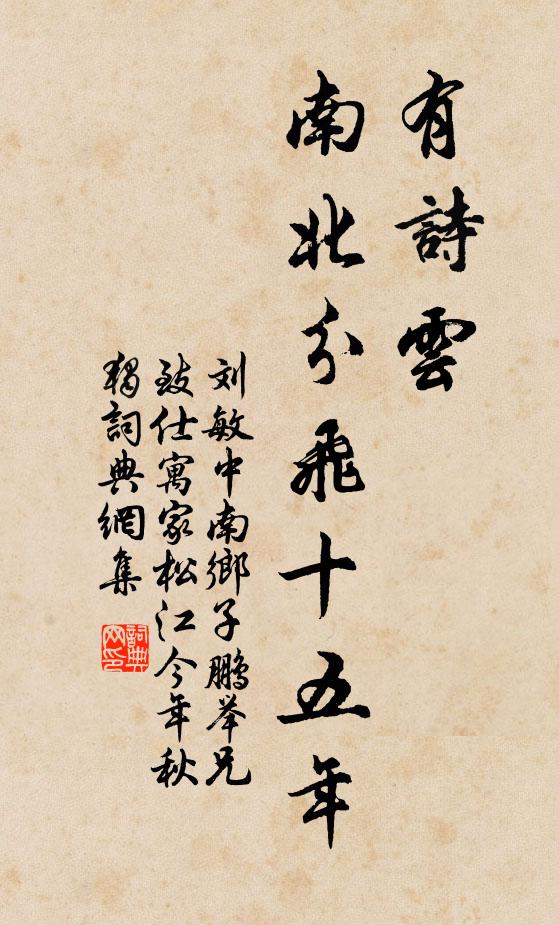 有詩雲
南北分飛十五年
刘敏中南鄉子鵬举兄
致仕寓家松江今年秋
獨詞典網集
詞典
网印